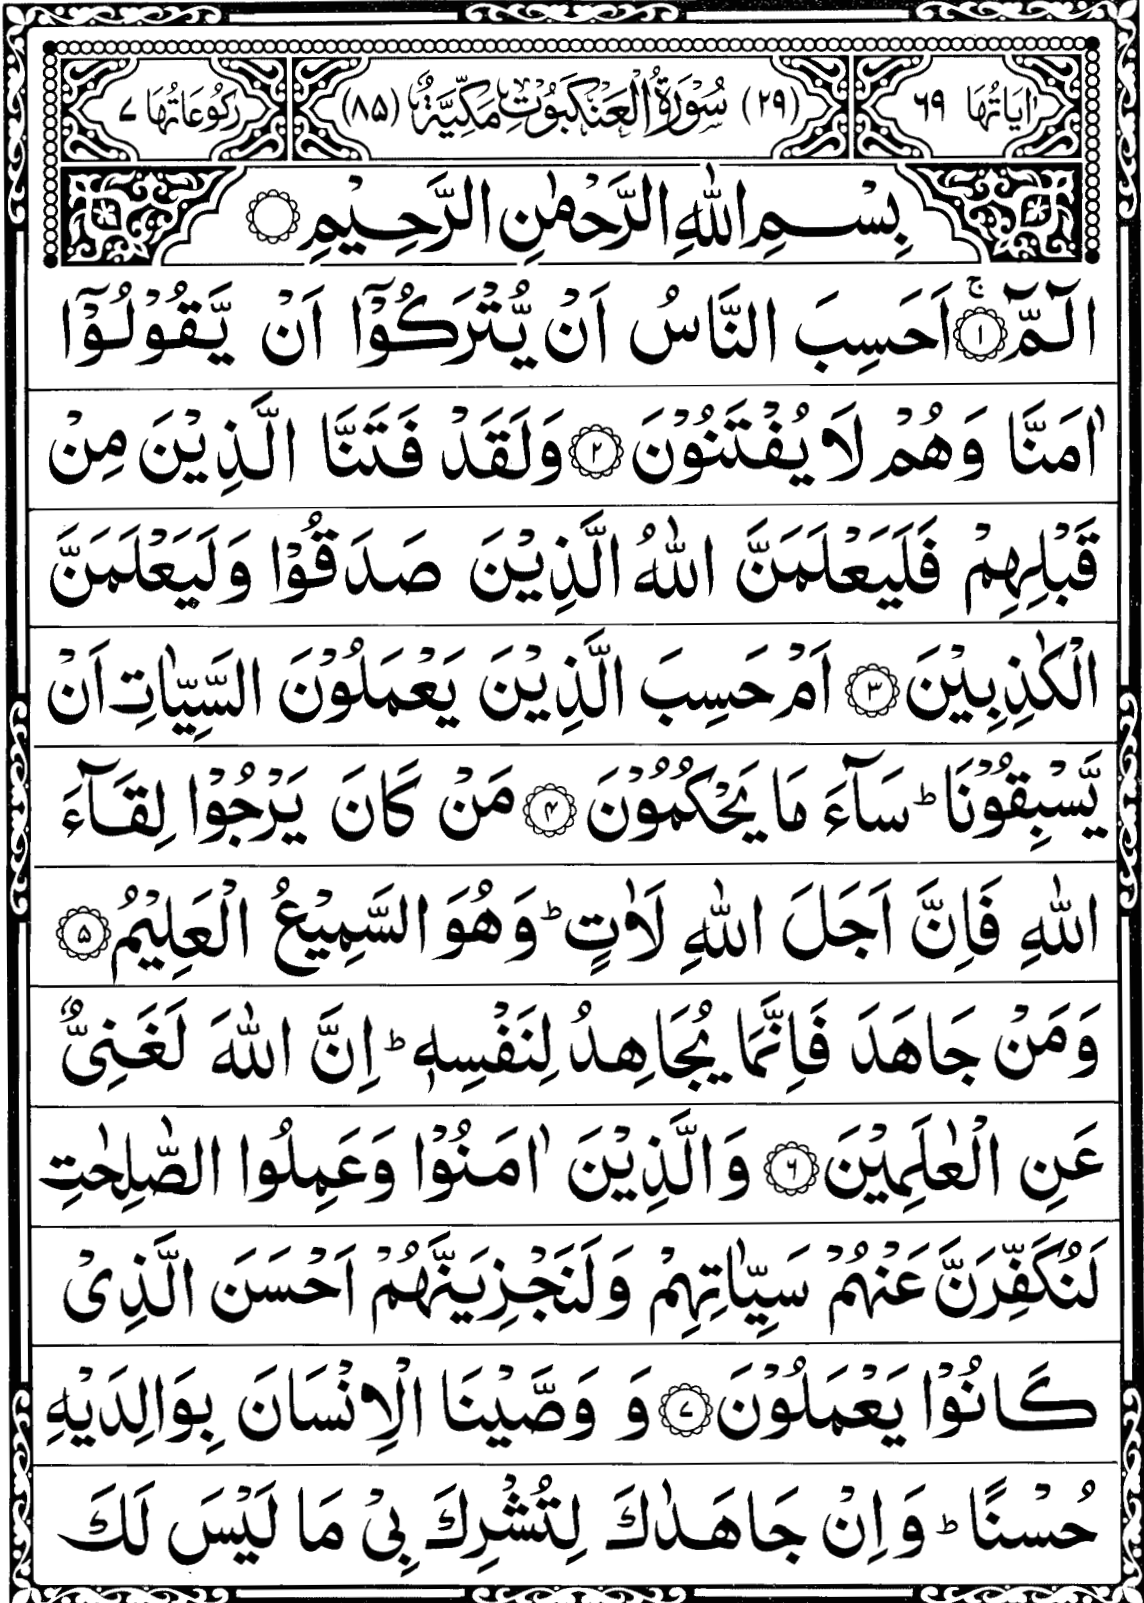 اٰيَاتُهَا ٦٩ (٢٩) سُوْرَةُ الْعَنْكَبُوْتِ مَكِّيَّةٌ (٨٥) رُكُوْعَاتُهَا ٧
بِسْمِ اللّٰهِ الرَّحْمٰنِ الرَّحِيْمِ
الٓمّٓ ۚ ﴿١﴾ اَحَسِبَ النَّاسُ اَنْ يُّتْرَكُوْٓا اَنْ يَّقُوْلُوْٓا
اٰمَنَّا وَهُمْ لَا يُفْتَنُوْنَ ﴿٢﴾ وَلَقَدْ فَتَنَّا الَّذِيْنَ مِنْ
قَبْلِهِمْ فَلَيَعْلَمَنَّ اللّٰهُ الَّذِيْنَ صَدَقُوْا وَلَيَعْلَمَنَّ
الْكٰذِبِيْنَ ﴿٣﴾ اَمْ حَسِبَ الَّذِيْنَ يَعْمَلُوْنَ السَّيِّاٰتِ اَنْ
يَّسْبِقُوْنَا ؕ سَآءَ مَا يَحْكُمُوْنَ ﴿٤﴾ مَنْ كَانَ يَرْجُوْا لِقَآءَ
اللّٰهِ فَاِنَّ اَجَلَ اللّٰهِ لَاٰتٍ ؕ وَهُوَ السَّمِيْعُ الْعَلِيْمُ ﴿٥﴾
وَمَنْ جَاهَدَ فَاِنَّمَا يُجَاهِدُ لِنَفْسِهٖ ؕ اِنَّ اللّٰهَ لَغَنِيٌّ
عَنِ الْعٰلَمِيْنَ ﴿٦﴾ وَالَّذِيْنَ اٰمَنُوْا وَعَمِلُوا الصّٰلِحٰتِ
لَنُكَفِّرَنَّ عَنْهُمْ سَيِّاٰتِهِمْ وَلَنَجْزِيَنَّهُمْ اَحْسَنَ الَّذِيْ
كَانُوْا يَعْمَلُوْنَ ﴿٧﴾ وَ وَصَّيْنَا الْاِنْسَانَ بِوَالِدَيْهِ
حُسْنًا ؕ وَاِنْ جَاهَدٰكَ لِتُشْرِكَ بِيْ مَا لَيْسَ لَكَ